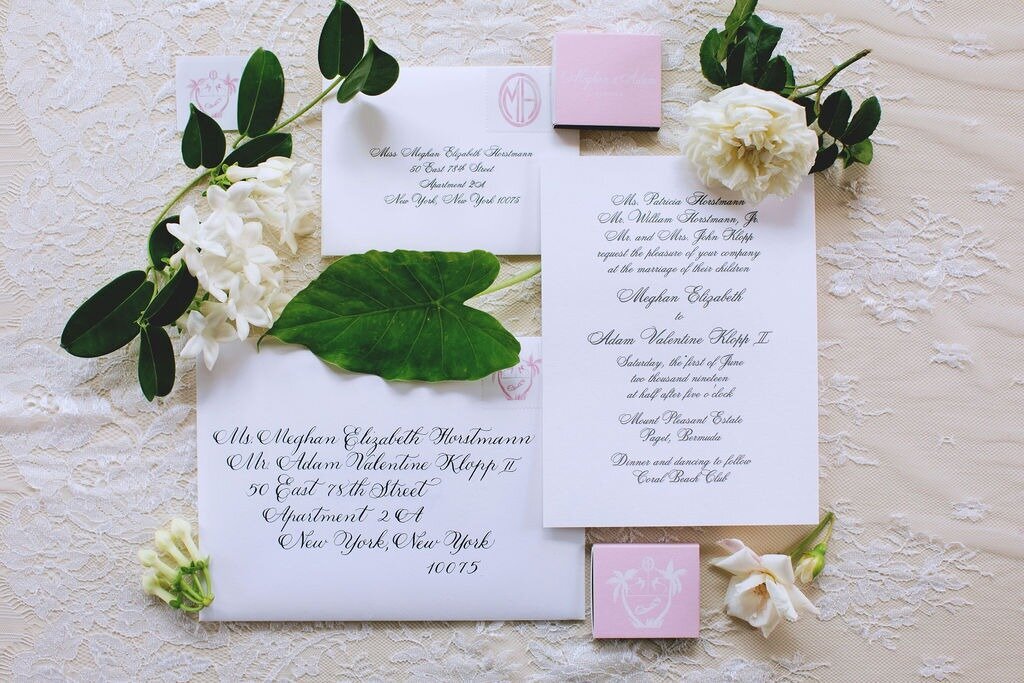 MA
Meghan & Adam
Miss Meghan Elizabeth Horstmann
50 East 78th Street
Apartment 2A
New York, New York 10075
Ms. Patricia Horstmann
Mr. William Horstmann, Jr.
Mr. and Mrs. John Klopp
request the pleasure of your company
at the marriage of their children
Meghan Elizabeth
to
Adam Valentine Klopp II
Saturday, the first of June
two thousand nineteen
at half after five o'clock
Mount Pleasant Estate
Paget, Bermuda
Dinner and dancing to follow
Coral Beach Club
Ms. Meghan Elizabeth Horstmann
Mr. Adam Valentine Klopp II
50 East 78th Street
Apartment 2A
New York, New York
10075